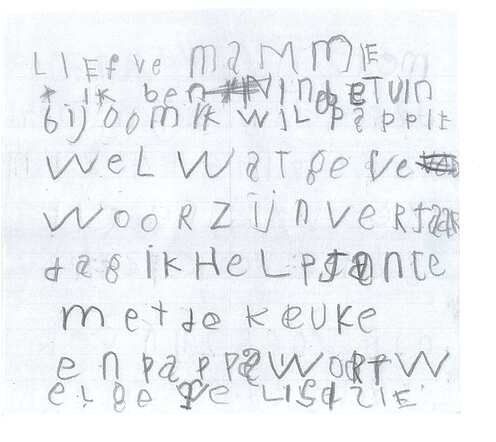 LIEfve maMmE
IK ben IN deTUIN
bijoom IK WIL pappIE
WeL Watgeve
WOOR ZijnVeRJaaR
dag iKHeLptante
met de KeUKe
en pappaWORt W
eLge